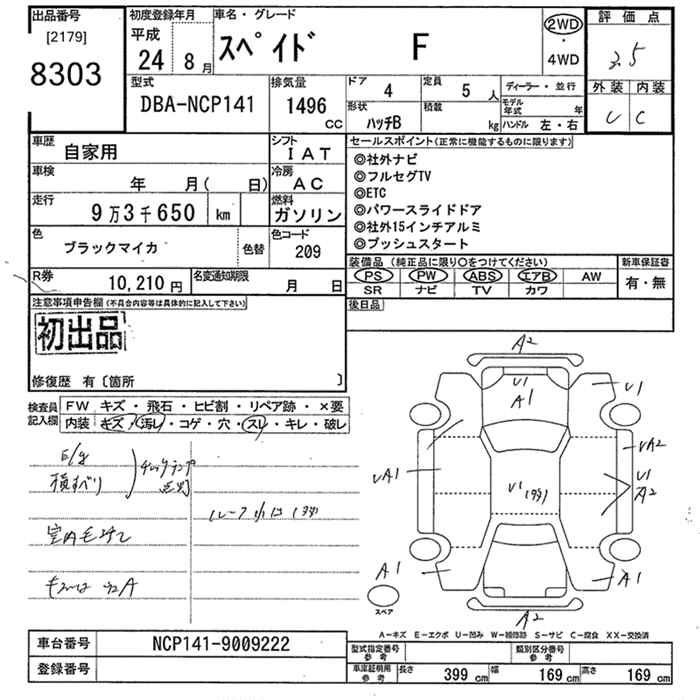 出品番号
[2179]
8303
初度登録年月
平成
24 8月
車名・グレード
スペイド F
2WD
・
4WD
評価点
3.5
外装 内装
C
型式
DBA-NCP141
排気量
1496 CC
ドア 4
定員 5 人
ディーラー・並行
形状 ハッチB
積載 kg
モデル年式 年
ハンドル 左・右
車歴
自家用
シフト
IAT
車検
年 月( 日)
冷房
AC
走行
9万3千650 km
燃料
ガソリン
色
ブラックマイカ 色替
色コード
209
R券 10,210円
名変通知期限 月 日
セールスポイント(正常に機能するものに限ります)
◎社外ナビ
◎フルセグTV
◎ETC
◎パワースライドドア
◎社外15インチアルミ
◎プッシュスタート
装備品 (純正品に限り○をつけてください)
新車保証書
PS PW ABS エアB AW
SR ナビ TV カワ
有・無
後日品
注意事項申告欄(不具合内容等は具体的に記入して下さい)
初出品
修復歴 有〔箇所 〕
検査員
記入欄
FW キズ・飛石・ヒビ割・リペア跡・×要
内装 キズ・汚レ・コゲ・穴・スレ・キレ・破レ
E/g
チェックランプ
A2
U1
A1
U1
UA1
UA2
U1
A2
U1
A1
A1
A2
スペア
A-キズ E-エクボ U-凹み W-補修跡 S-サビ C-腐食 XX-交換済
車台番号 NCP141-9009222
登録番号
型式指定番号
参考
類別区分番号
参考
車庫証明用
参考
長さ 399 cm 幅 169 cm 高さ 169 cm